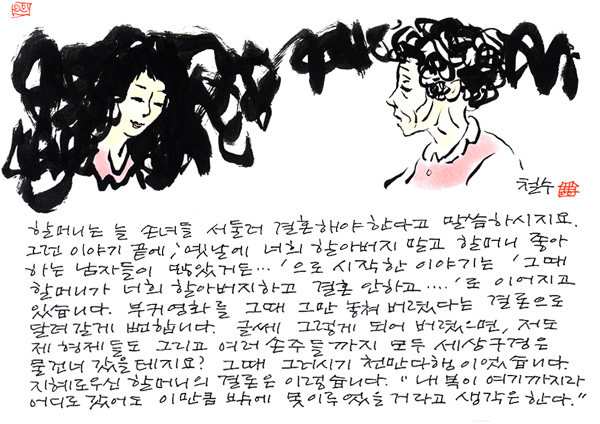 철수
할머니는 늘 손녀들 서둘러 결혼해야한다고 말씀하시지요.
그런 이야기 끝에, '옛날에 너희 할아버지 말고 할머니 좋아
하는 남자들이 많았거든…'으로 시작한 이야기는 '그때
할머니가 너희 할아버지하고 결혼 안하고….'로 이어지고
있습니다. 부귀영화를 그때 그만 놓쳐 버렸다는 결론으로
달려갈게 뻔합니다. 글쎄 그렇게 되어 버렸으면, 저도
제 형제들도 그리고 여러 손주들까지 모두 세상구경은
물건너 갔을테지요? 그때 그러시기 천만다행이었습니다.
지혜로우신 할머니의 결론은 이렇습니다. "내 복이 여기까지라
어디로 갔어도 이만큼 밖에 못이루었을 거라고 생각은한다."